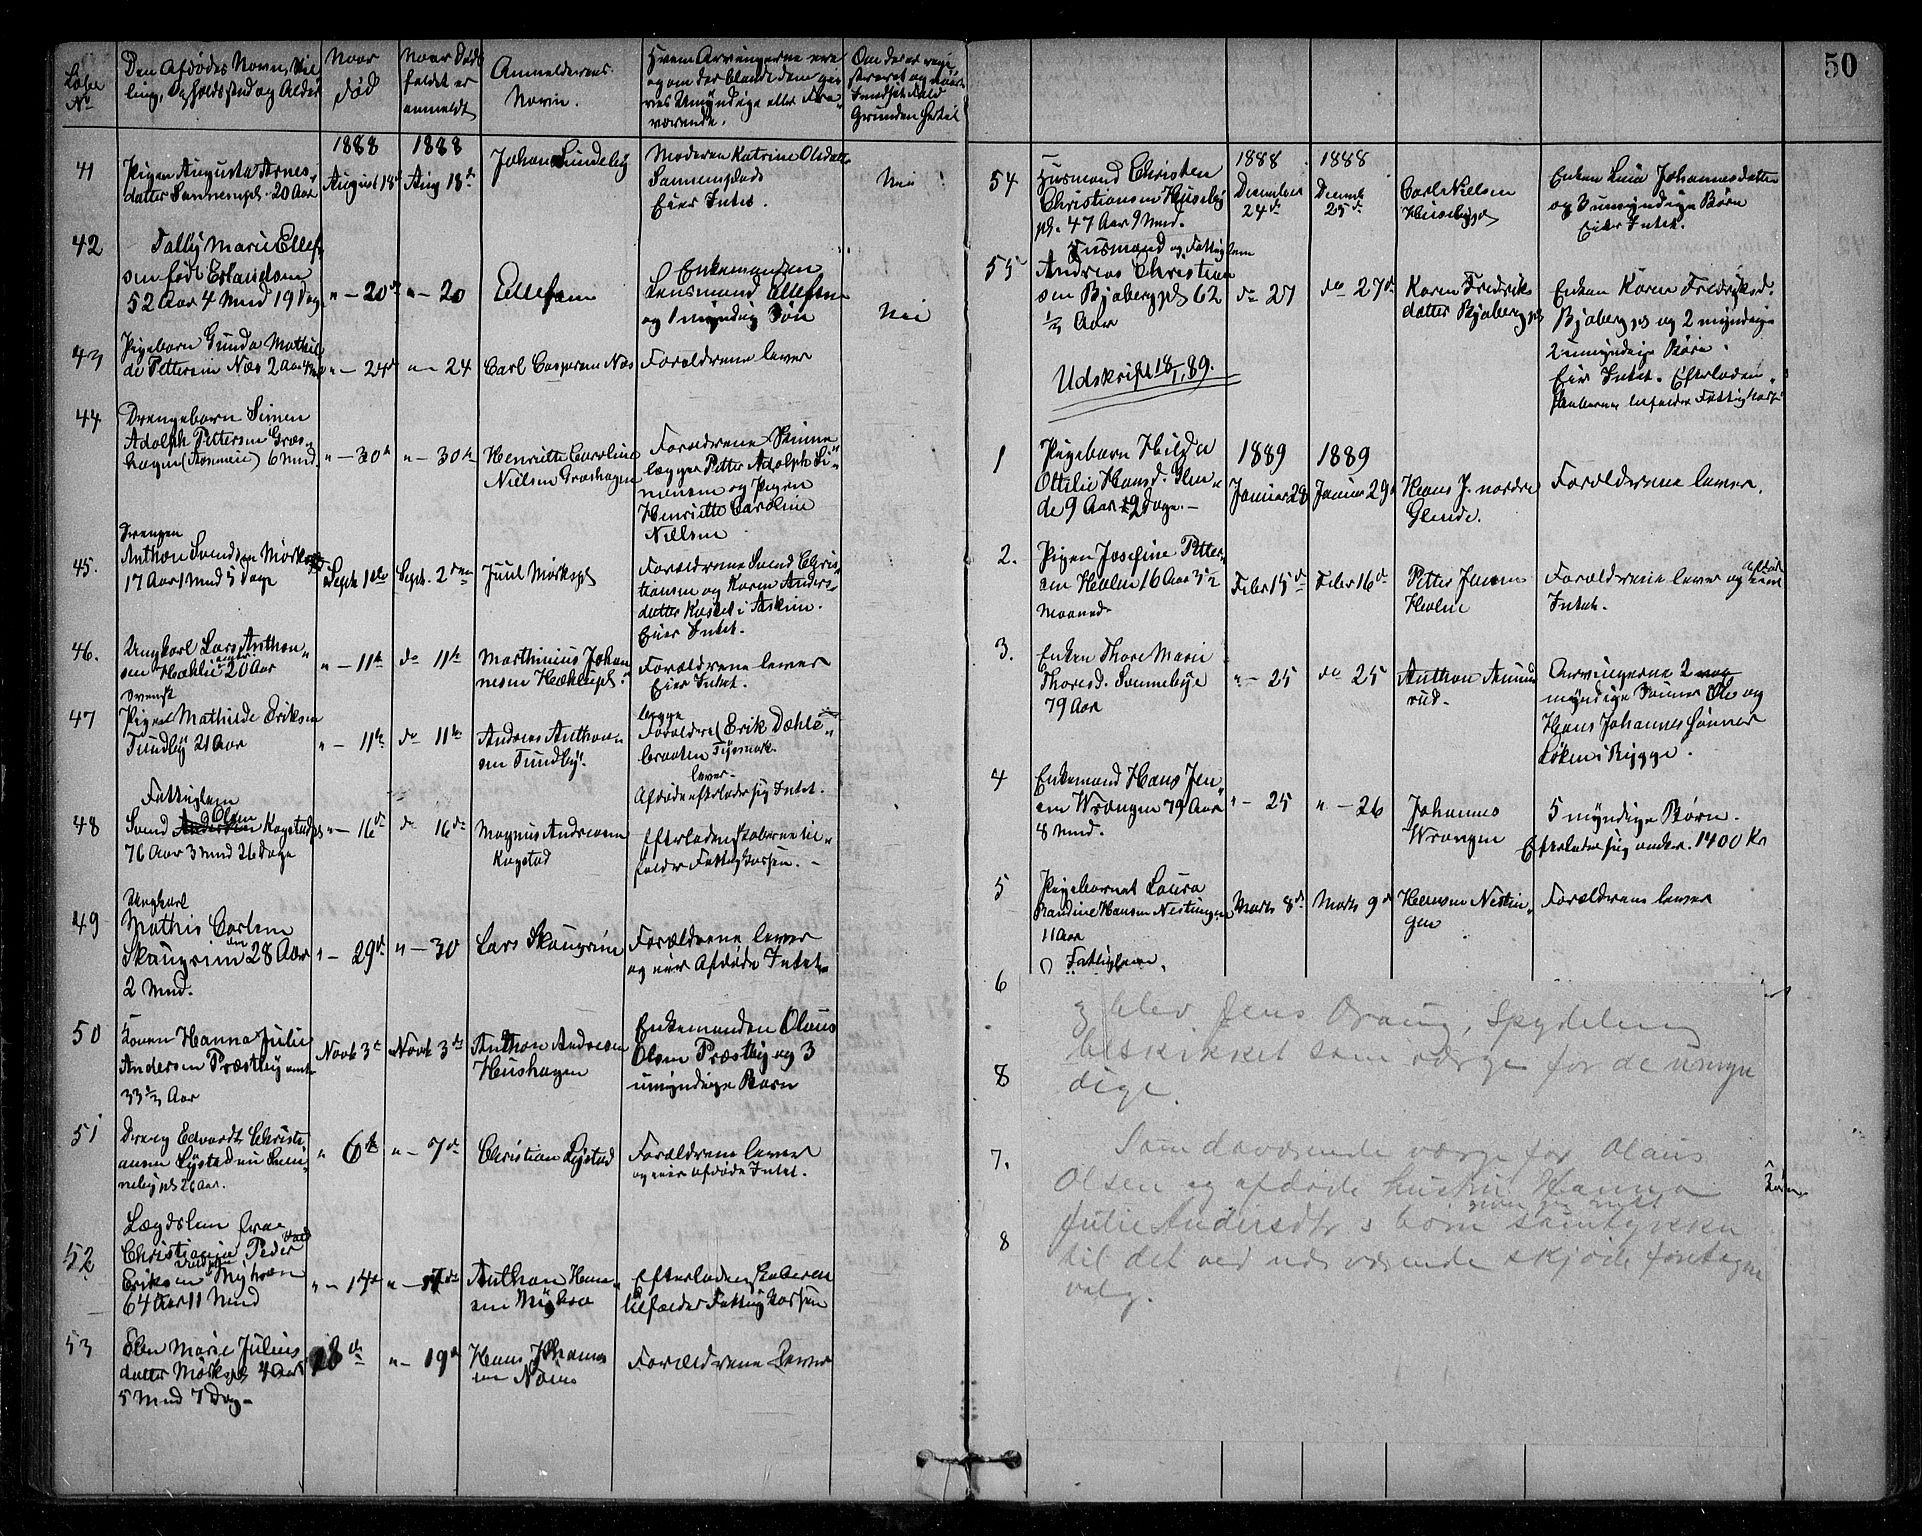 50
Løbe
No
Den Afdødes Navn, Stil
ling, Opholdssted og Alder
Naar
død
Naar Døds
faldet er
anmeldt
Anmelderens
Navn.
Hvem Arvingerne ere
og om der blandt dem gi
ves Umyndige eller Fra
værende.
1888
1888
41
Pigen Augusta Arnes
datter 20 Aar
August 18de
Aug 18de
Johan Sundby
Moderen Katrine Olsdatter
Eier Intet.
Nei
42
Marie Ellef
sen født Erlandsen
52 Aar 4 Mnd 19 Dag
" – 20de
" – 20
Ellefsen
Enkemanden
Lensmand Ellefsen
og 1 myndig Søn
Nei
43
Pigebarn Gunda Mathil
de Pettersen Næs 2 Aar
" – 24
" – 24
Carl Caspersen Næs
Forældrene lever
44
Drengebarn Simen
Adolph Pettersen Græs
hagen 6 Mnd.
" – 30te
" – 30te
Henriette Caroline
Nielsen Græshagen
Forældrene
Petter Adolph Si
mensen og Pigen
Henriette Caroline
Nielsen
45.
Drengen
Anthon Svendsen Mørk
17 Aar 1 Mnd 5 Dage
Sept 1ste
Sept. 2den
Juul Mørkspl
Forældrene Svend Chris
tiansen og Karen Anders
datter i Askim.
Eier Intet.
46.
Ungkarl Lars Anthon
sen Hæklie 20 Aar
" – 11te
do 11te
Marthinius Johan
nesen Hæklepl.
Forældrene lever
Eier Intet.
47
svensk
Pigen Mathilde Eriksen
Tundby 21 Aar
" – 11te
do 11te
Andreas Anthon
sen Tundby.
begge
Forældre Erik Dæhle
braaten
lever
Afdøde efterlader sig Intet.
48
Fattiglem
Svend Olsen Kogstadpl
76 Aar 3 Mnd 26 Dage
" – 16de
do 16de
Magnus Andresen
Kogstad
Efterladenskaberne til
falder Fattigkassen. –
49
Ungkarl
Mathis Carlsen
Skaugrim 28 Aar
2 Mnd.
" – 29de
" – 30
Lars Skaugrim
Forældrene lever
og eier Afdøde Intet
50
Konen Hanna Julie
Andersen Præstby
33 ⅔ Aar
Novb 3de
Novb 3de
Anthon Andresen
Hushagen
Enkemanden Olaus
Olsen Præstby og 3
umyndige Børn
51
Dreng Edvardt Christi
ansen Lystad
26 Aar.
" 6te
" – 7de
Christian Lystad
Forældrene lever
og eier afdøde Intet.
52
Lægdslem
Christiania Peder
Eriksen Myhræn
64 Aar 11 Mnd
" – 14de
" – 17de
Anthon Han
sen
Efterladenskaberne
tilfalder Fattigkassen
53
Elen Marie Julius
datter Mørkspl 4 Aar
5 Mnd 7 Dag
18de
" – 19de
Hans Johannes
sen Næss
Forældrene lever
1888
1888
54
Husmand Christen
Christiansen Huseby
pl. 47 Aar 9 Mnd.
December
24de
Decemb
25de
Carl Nielsen
Husebypl
Enken Lina Johannesdatter
og 3 umyndige Børn
Eier Intet.
55
Husmand og Fattiglem
Andreas Christian
sen Bjabergpl 62
½ Aar
do 27
do 27de
Karen Fredriks
datter Bjabergpl
Enken Karen Fredriksd.
Bjabergpl og 2 myndige
2 umyndige Børn.
Eier Intet. Efterladen
skaberne tilfalder Fattigkasse
Udskrift 18/1 89.
1889
1889
1
Pigebarn Hilda
Ottilie Hansd. Glen
de 9 Aar 29 Dage. –
Januar 28
Januar 29
Hans J. nordre
Glende.
Forældrene lever.
2.
Pigen Josefine Petter
sen Holm 16 Aar 3½
Maaned
Febr 15de
Febr 16de
Petter Jensen
Holm
Forældrene lever og Afdøde eier
Intet.
3.
Enken Thore Marie
Thoresd. Sonnebye
79 Aar
" – 25
do 25
Anthon Amund
rud.
Arvingerne 2
myndige Sønner Ole og
Hans Johannessønner
Løken i Rygge.
4
Enkemand Hans Jen
sen Wrangen 79 Aar
8 Mnd.
" – 25
" – 26
Johannes
Wrangen
5 myndige Børn.
Efterlader sig omker. 1400 Kr
5
Pigebarnet Laura
Randine Hansen Nestingen
11 Aar
Marts 8de
Marts 9de
Hansen Nestin
gen
Forældrene lever
6
Fattiglem.
8
7.
8
blev Jens Spydeberg
beskikket som værge for de umyn
dige.
Som daværende værge for Olaus
Olsen og afdøde hustru Hanna
Julie Andersdtr 3 børn samtykker
til det ved nærværende skjøde foretagne
valg.